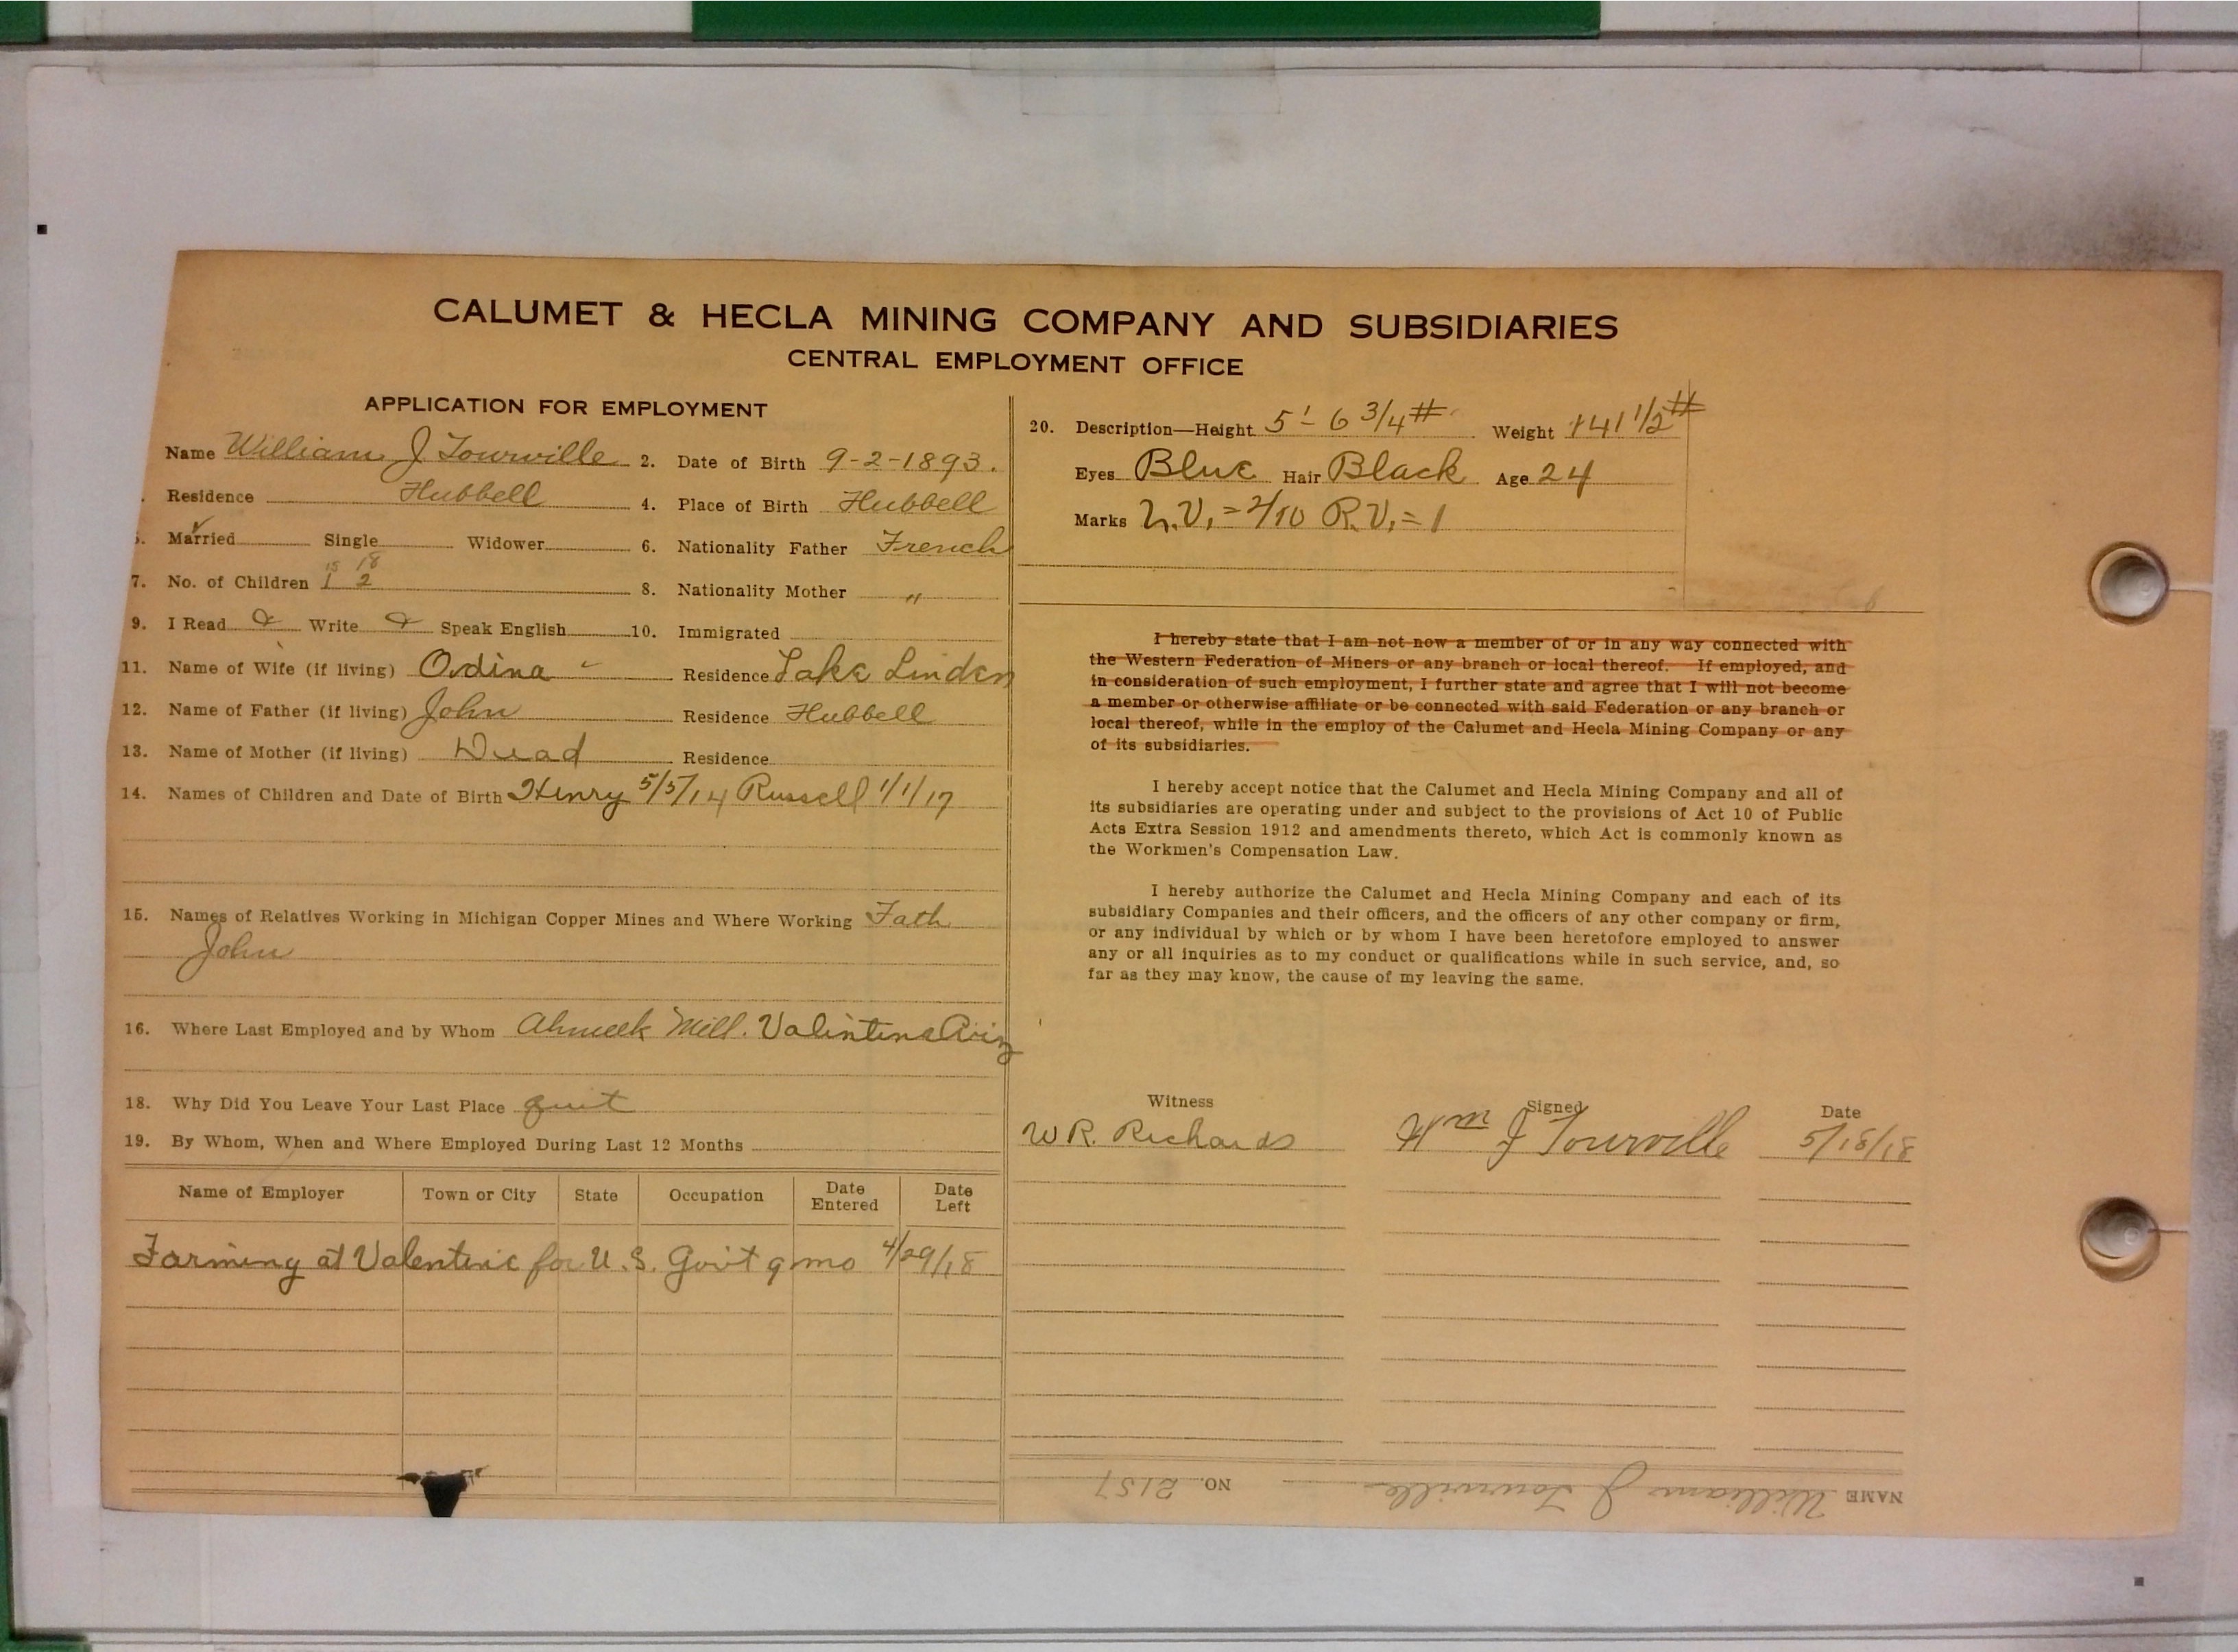 CALUMET & HECLA MINING COMPANY AND SUBSIDIARIES
CENTRAL EMPLOYMENT OFFICE
APPLICATION FOR EMPLOYMENT
Name William J Tourville 2. Date of Birth 9-2-1893.
Residence Hubbell 4. Place of Birth Hubbell
Married ✓ Single Widower 6. Nationality Father French
15 18
7. No. of Children 1 2 8. Nationality Mother "
9. I Read & Write & Speak English 10. Immigrated
11. Name of Wife (if living) Ordina Residence Lake Linden
12. Name of Father (if living) John Residence Hubbell
13. Name of Mother (if living) Dead Residence
14. Names of Children and Date of Birth Henry 5/5/14 Russell 1/1/17
15. Names of Relatives Working in Michigan Copper Mines and Where Working Fath
John
16. Where Last Employed and by Whom Ahmeek Mill. Valintine Ariz
18. Why Did You Leave Your Last Place quit
19. By Whom, When and Where Employed During Last 12 Months
Name of Employer Town or City State Occupation Date Entered Date Left
Farming at Valentine for U.S. Gov't 9 mo 4/29/18
20. Description—Height 5'- 6 3/4# Weight 141 1/2#
Eyes Blue Hair Black Age 24
Marks L.V. = 2/10 R.V. = 1
I hereby state that I am not now a member of or in any way connected with
the Western Federation of Miners or any branch or local thereof. If employed, and
in consideration of such employment, I further state and agree that I will not become
a member or otherwise affiliate or be connected with said Federation or any branch or
local thereof, while in the employ of the Calumet and Hecla Mining Company or any
of its subsidiaries.
I hereby accept notice that the Calumet and Hecla Mining Company and all of
its subsidiaries are operating under and subject to the provisions of Act 10 of Public
Acts Extra Session 1912 and amendments thereto, which Act is commonly known as
the Workmen's Compensation Law.
I hereby authorize the Calumet and Hecla Mining Company and each of its
subsidiary Companies and their officers, and the officers of any other company or firm,
or any individual by which or by whom I have been heretofore employed to answer
any or all inquiries as to my conduct or qualifications while in such service, and, so
far as they may know, the cause of my leaving the same.
Witness Signed Date
W R. Richards Wm J Tourville 5/18/18
NAME William J Tourville NO. 2157